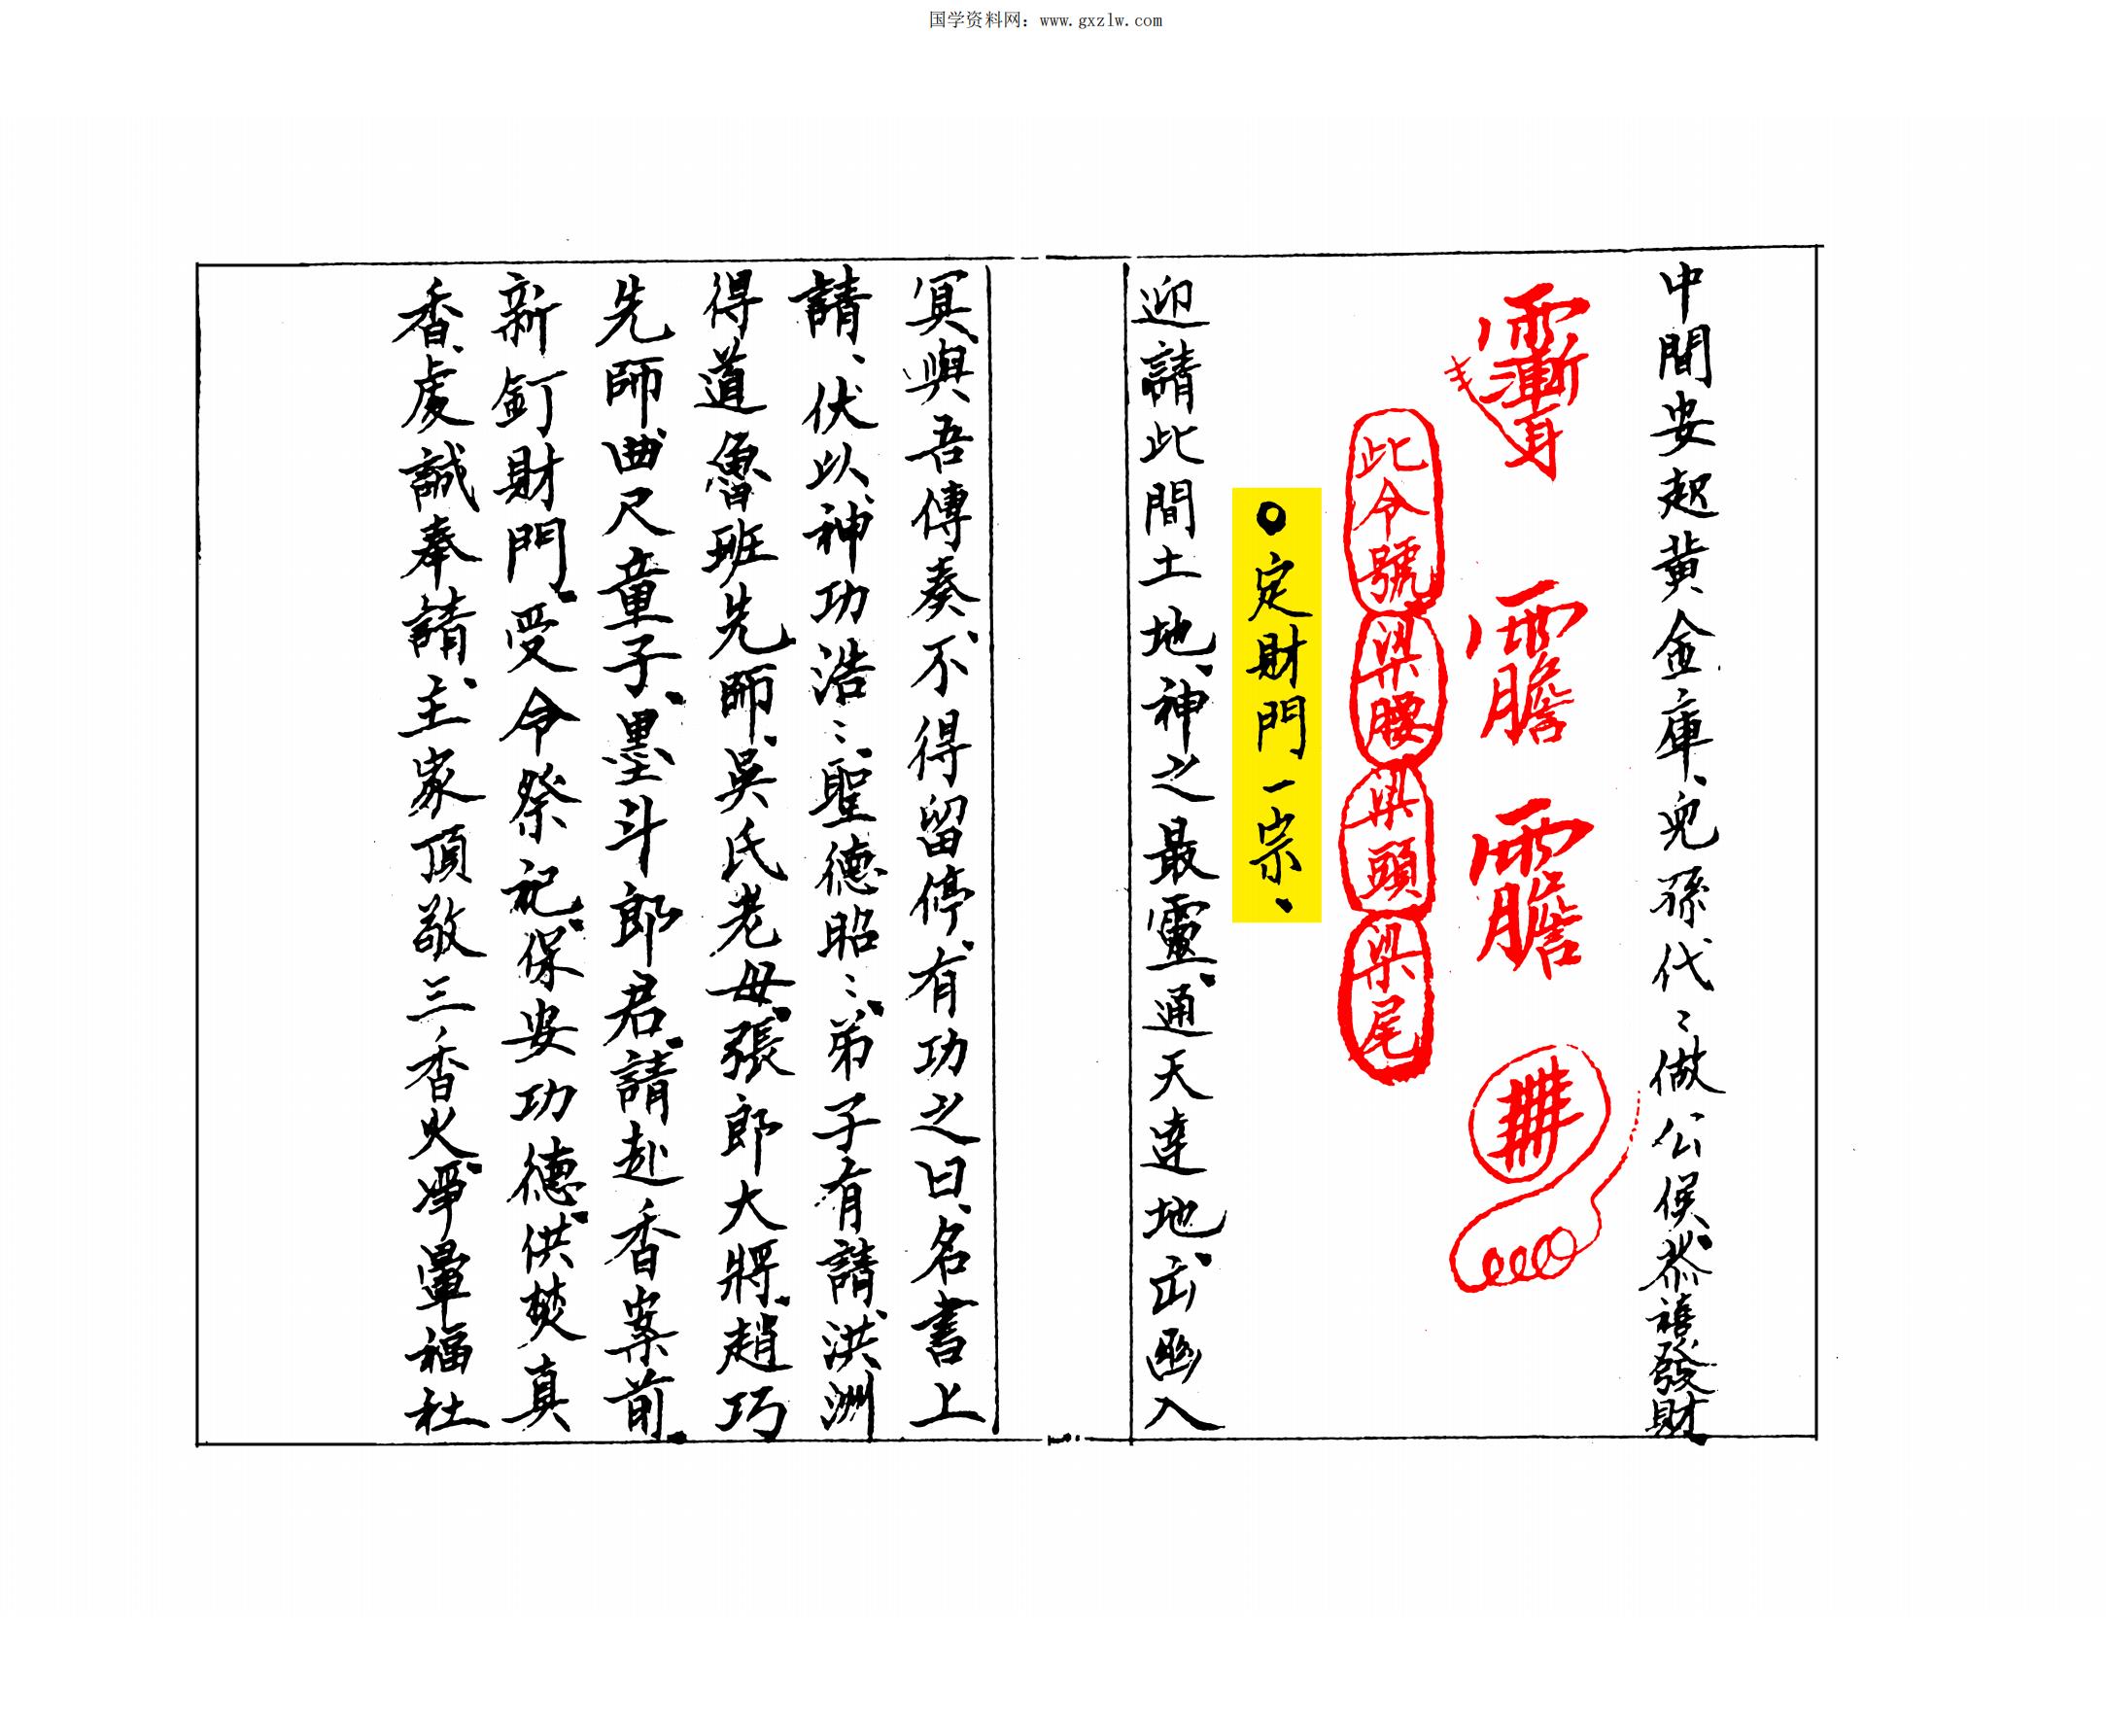 国学资料网：www.gxzlw.com
中間安起黄金庫、兒孫代〻做公侯、恭禧發財、
此令號 梁腰 梁頭 梁尾
○定財門一宗、
迎請此間土地、神之最靈、通天達地、出幽入
冥、與吾傳奏、不得留停、有功之日、名書上
請、伏以、神功浩〻、聖德昭〻、弟子有請、洪洲
得道魯班先師、吳氏老母、張郎大將、趙巧
先師、曲尺童子、墨斗郎君、請赴香案前、
新釘財門、受令祭祀、保安功德、供焚真
香、虔誠奉請、主家頂敬三香火、爭暈福社